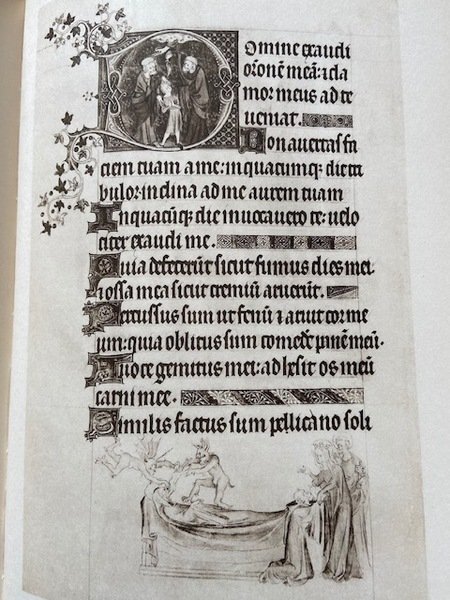 Domine exaudi
orõnem meã: ⁊ cla
mor meus ad te
ueniat.
Non auertas fa
ciem tuam a me: in quacumq; die tri
bulor inclina ad me aurem tuam
In quacũq; die inuocauero te: uelo
citer exaudi me.
Quia defecerũt sicut fumus dies mei:
⁊ ossa mea sicut cremiũ aruerũt.
Percussus sum ut fenũ ⁊ aruit cor me
um: quia oblitus sum comedere panem meũ.
A uoce gemitus mei: adhesit os meũ
carni mee.
Similis factus sum pellicano soli